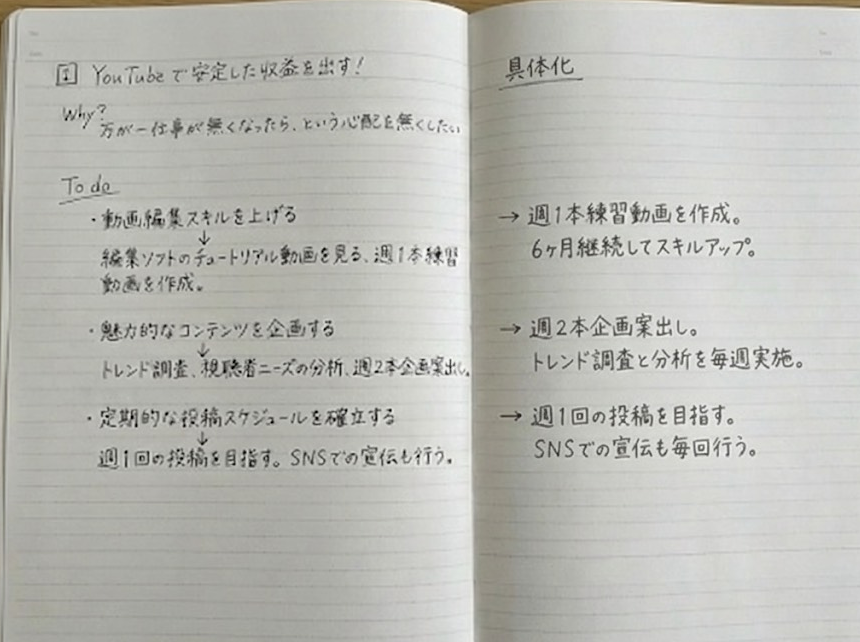 1 YouTubeで安定した収益を出す!
Why?
万が一仕事が無くなったら、という心配を無くしたい
To do
・動画編集スキルを上げる
↓
編集ソフトのチュートリアル動画を見る、週1本練習
動画を作成。
・魅力的なコンテンツを企画する
↓
トレンド調査、視聴者ニーズの分析、週2本企画案出し。
・定期的な投稿スケジュールを確立する
↓
週1回の投稿を目指す。SNSでの宣伝も行う。
具体化
→ 週1本練習動画を作成。
6ヶ月継続してスキルアップ。
→ 週2本企画案出し。
トレンド調査と分析を毎週実施。
→ 週1回の投稿を目指す。
SNSでの宣伝も毎回行う。